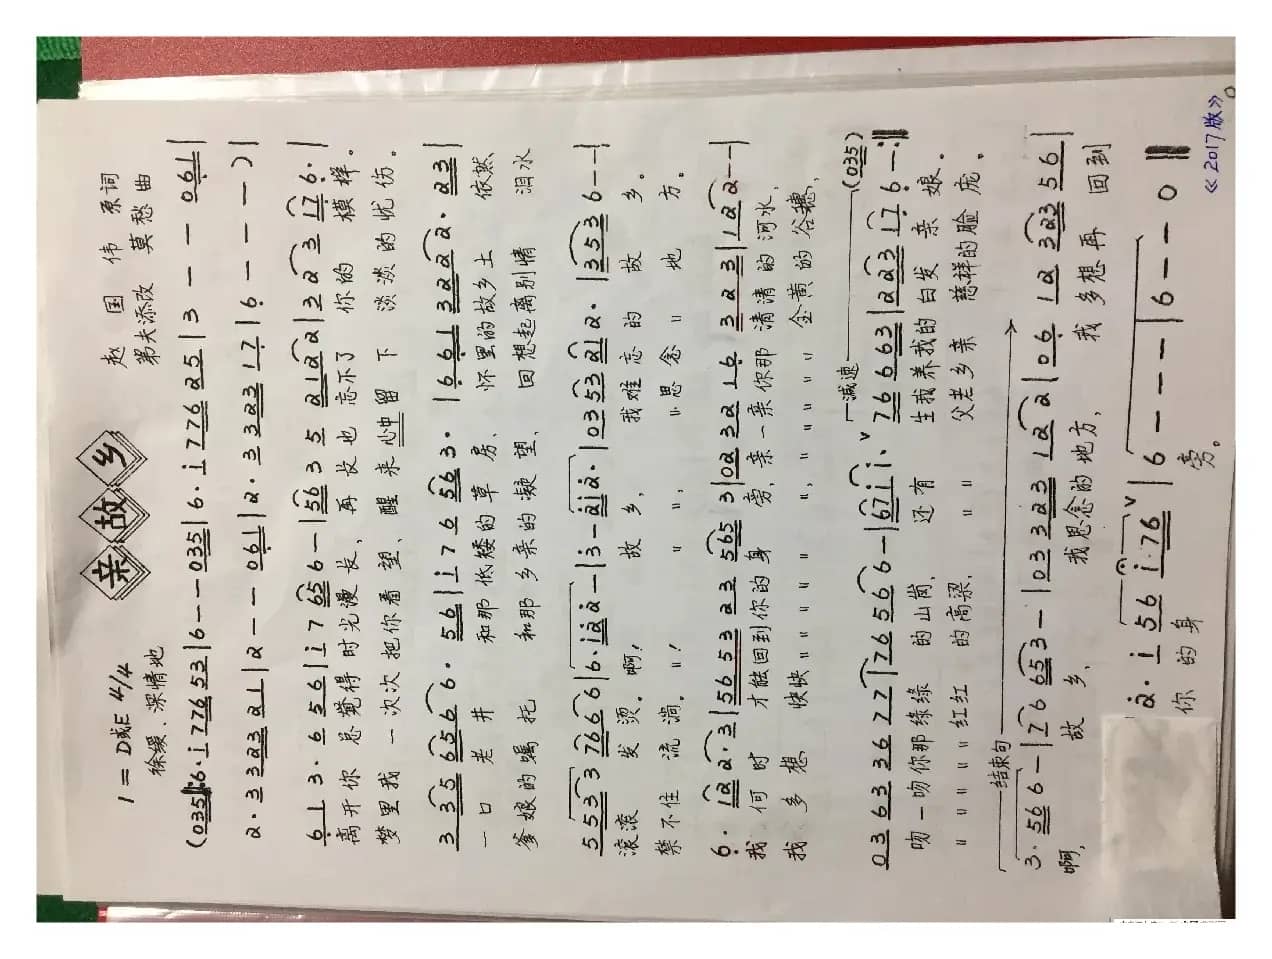 亲故乡
1=D或E 4/4
徐缓、深情地
赵国伟 原词
弟夫添改 莫愁 曲
(035 6·i 77653|6--035|6·i 77625|3--061|
2·3 323 21|2--061|2·3 323 17|6---)|
6 1 3·6 556|i 7 656 6-|563 5 2122|323 176·|
离开你总觉得时光漫长,再长也忘不了你的模样。
梦里我一次次把你看望、醒来心中留下淡淡的忧伤。
3 35 656 6·56|i 76 563·|6 61 322 2·23|
一口老井和那低矮的草房、怀里的故乡土依然
爹娘的嘱托和那乡亲的凝望、回想起离别情泪水
5 533 766 6|6·i2 2-|3-2i2·|035321 2·|3 5 3 6--|
滚滚发烫。啊!故乡,我难忘的故乡。
禁不住流淌。〃!〃〃,〃思念〃地方。
6·12 2·3|5653 23 565 3|0232 16 323|122--|
我何时才能回到你的身旁、亲一亲你那清清的河水,
我多想快快〃〃〃〃〃〃,〃〃〃〃〃金黄的谷穗,
减速
(035)
036336 77|765666-|67ii·ˇ76663|223 176-·|
吻一吻你那绿绿的山岗,还有生我养我的白发亲娘。
〃〃〃〃红红的高粱,〃〃父老乡亲慈祥的脸庞。
结束句
3·566-|76653-|033323 122|06 12 323 56|
啊,故乡,我思念的地方,我多想再回到
2·i 56 i·76ˇ|6---|6--0‖
你的身旁。
《2017版》